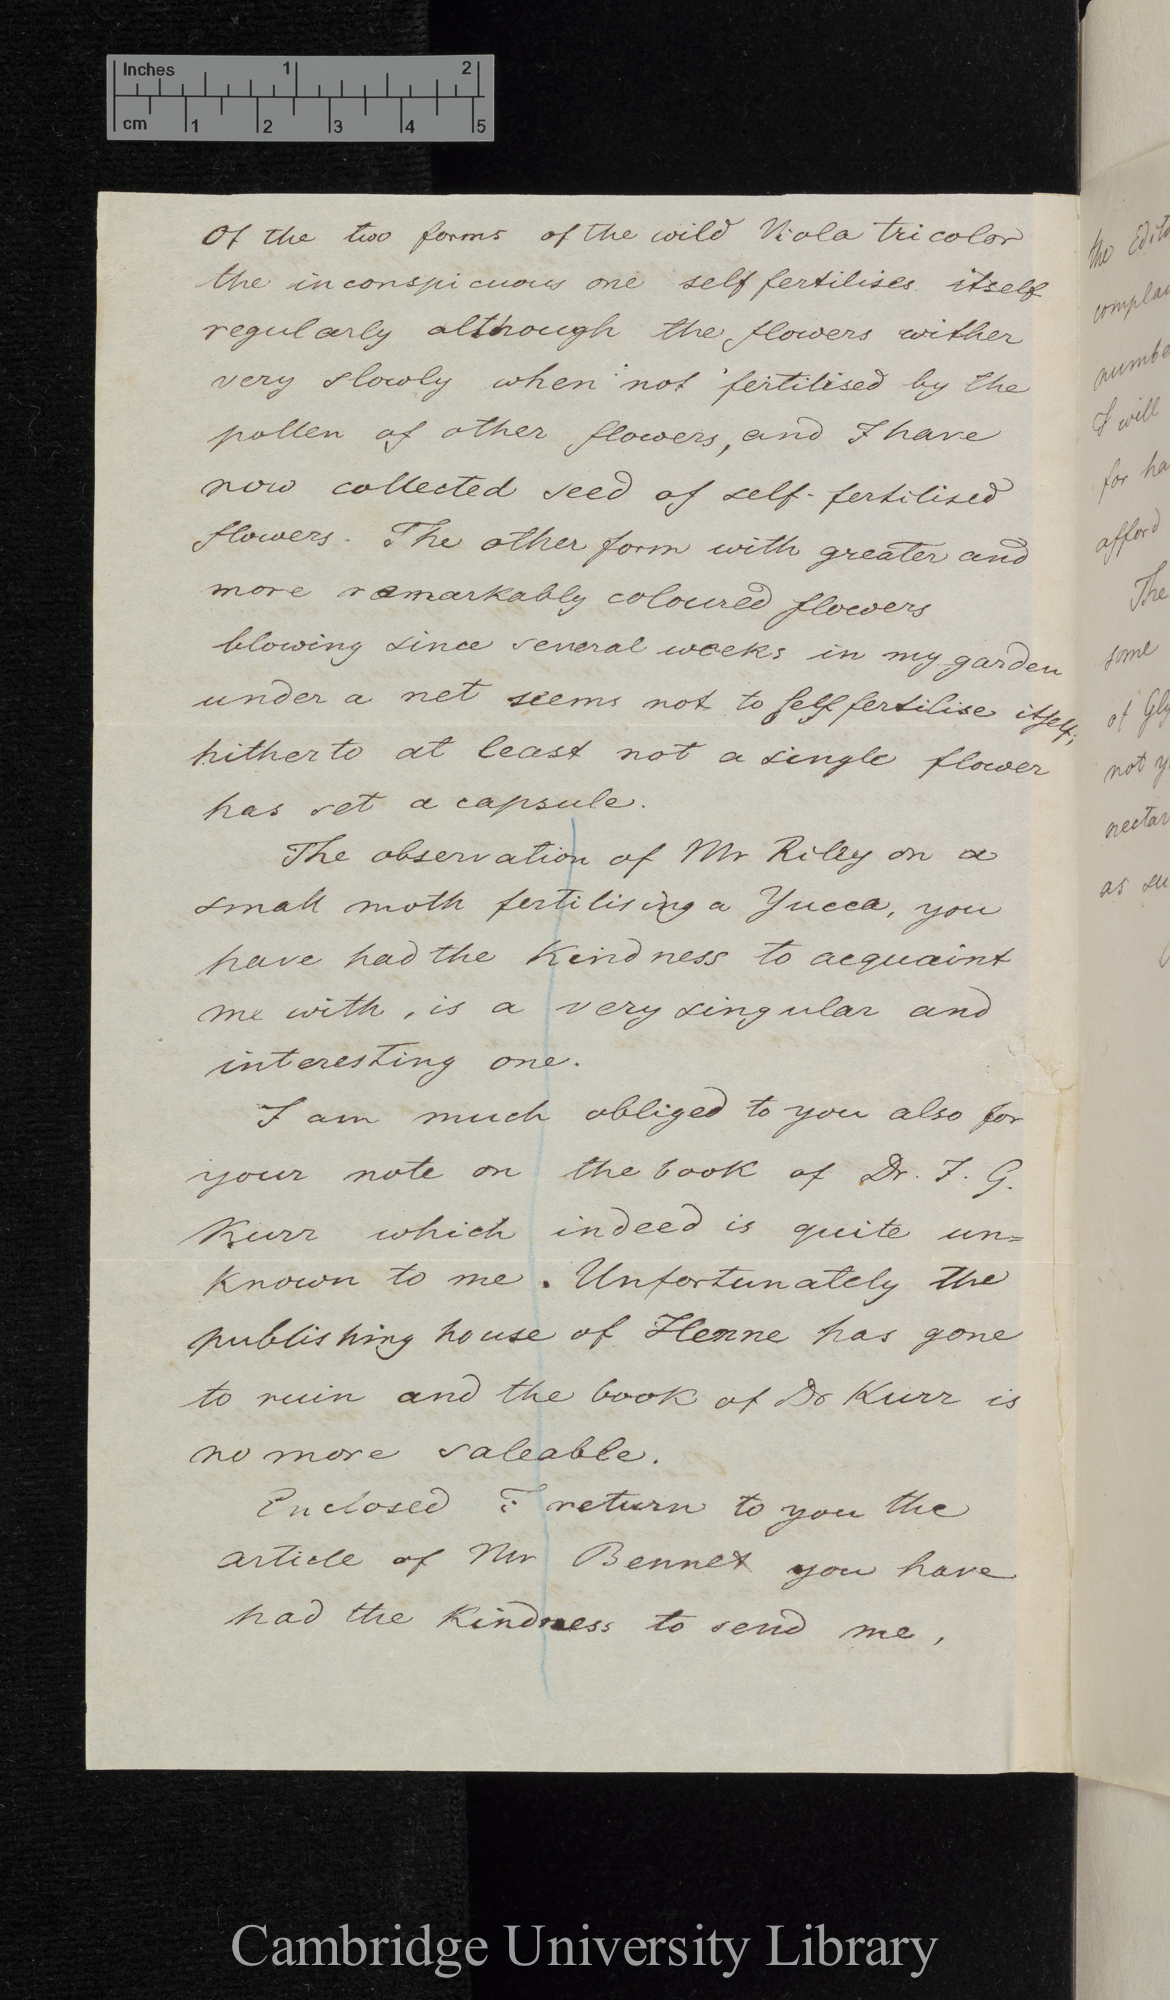 Inches 1 2
cm 1 2 3 4 5
Of the two forms of the wild Viola tricolor
the inconspicuous one self fertilises itself
regularly although the flowers wither
very slowly when not fertilised by the
pollen of other flowers, and I have
now collected seed of self-fertilised
flowers. The other form with greater and
more remarkably coloured flowers
blowing since several weeks in my garden
under a net seems not to self fertilise itself;
hitherto at least not a single flower
has set a capsule.
The observation of Mr Riley on a
small moth fertilising a Yucca, you
have had the Kindness to acquaint
me with, is a very singular and
interesting one.
I am much obliged to you also for
your note on the book of Dr. J. G.
Kurr which indeed is quite un=
known to me. Unfortunately the
publishing house of Henne has gone
to ruin and the book of Dr Kurr is
no more saleable.
Enclosed I return to you the
article of Mr Bennet you have
had the Kindness to send me,
the
number
I will
for
afford
The
some
of
not
as
Cambridge University Library